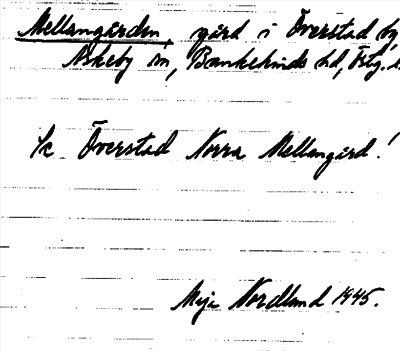 Mellangården, gård i Överstad by,
Askeby sn, Bankekinds hd, Ög. l.
/k Överstad Norra Mellangård!
Maja Nordlund 1945.